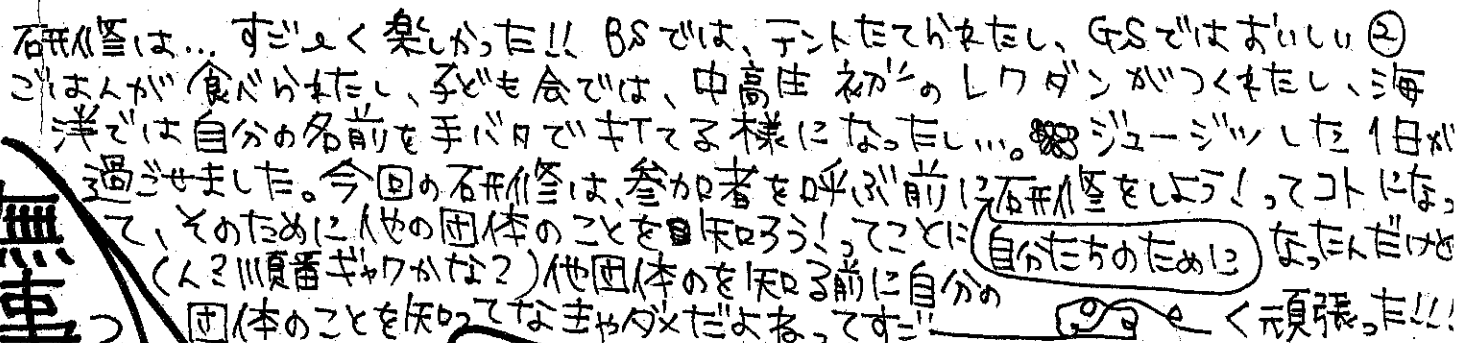 研修は…すごーく楽しかった!! BSでは、テントたてられたし、GSではおいしい②
ごはんが食べられたし、子ども会では、中高生初!!のレクダンがつくれたし、海
洋では自分の名前を手バタで打てる様になったし…。ジュージツした1日が
過ごせました。今回の研修は、参加者を呼ぶ前に研修をしよう!ってコトになっ
て、そのために他の団体のことを知ろう!ってことに 自分たちのために なったんだけど
(ん?順番ギャクかな?)他団体のを知る前に自分の
団体のことを知ってなきゃダメだよねってすご〜く頑張った!!!
無事